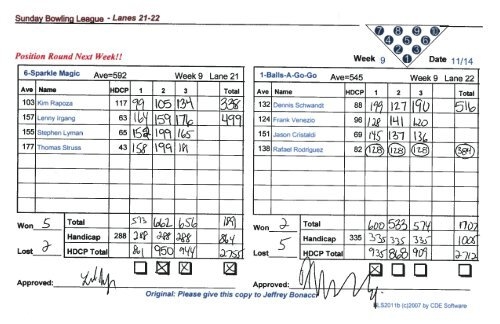 Sunday Bowling League - Lanes 21-22
7 8 9 10
4 5 6
2 3
1
Position Round Next Week!!
Week 9 Date 11/14
6-Sparkle Magic Ave=592 Week 9 Lane 21
Ave Name HDCP 1 2 3 Total
103 Kim Rapoza 117 99 105 134 338
157 Lenny Irgang 63 164 159 176 499
155 Stephen Lyman 65 152 199 165
177 Thomas Struss 43 158 199 181
Won 5 Total 573 662 656 1891
Handicap 288 288 288 288 864
Lost 2 HDCP Total 861 950 944 2755
Approved:
1-Balls-A-Go-Go Ave=545 Week 9 Lane 22
Ave Name HDCP 1 2 3 Total
132 Dennis Schwandt 88 199 127 190 516
124 Frank Venezio 96 128 141 120
151 Jason Cristaldi 69 145 137 136
138 Rafael Rodriguez 82 128 128 128 384
Won 2 Total 600 533 574 1707
5 Handicap 335 335 335 335 1005
Lost HDCP Total 935 868 909 2712
Approved:
Original: Please give this copy to Jeffrey Bonacci
BLS2011b (c)2007 by CDE Software